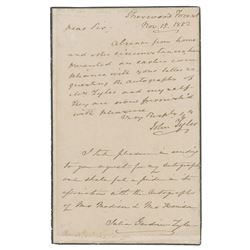 Sherwood Forest
Nov. 15. 1852
Dear Sir,
Absence from home
and other circumstances have
prevented an earlier com-
pliance with your letter re-
questing the autographs of
Mrs Tyler and myself.
They are now furnish'd
with pleasure
Very Respty Yr
John Tyler
I take pleasure in sending
to you a request for my autograph
and shall feel a pride in its
association with the Autographs
of Mrs Madison & Mrs
Julia Gardiner Tyler